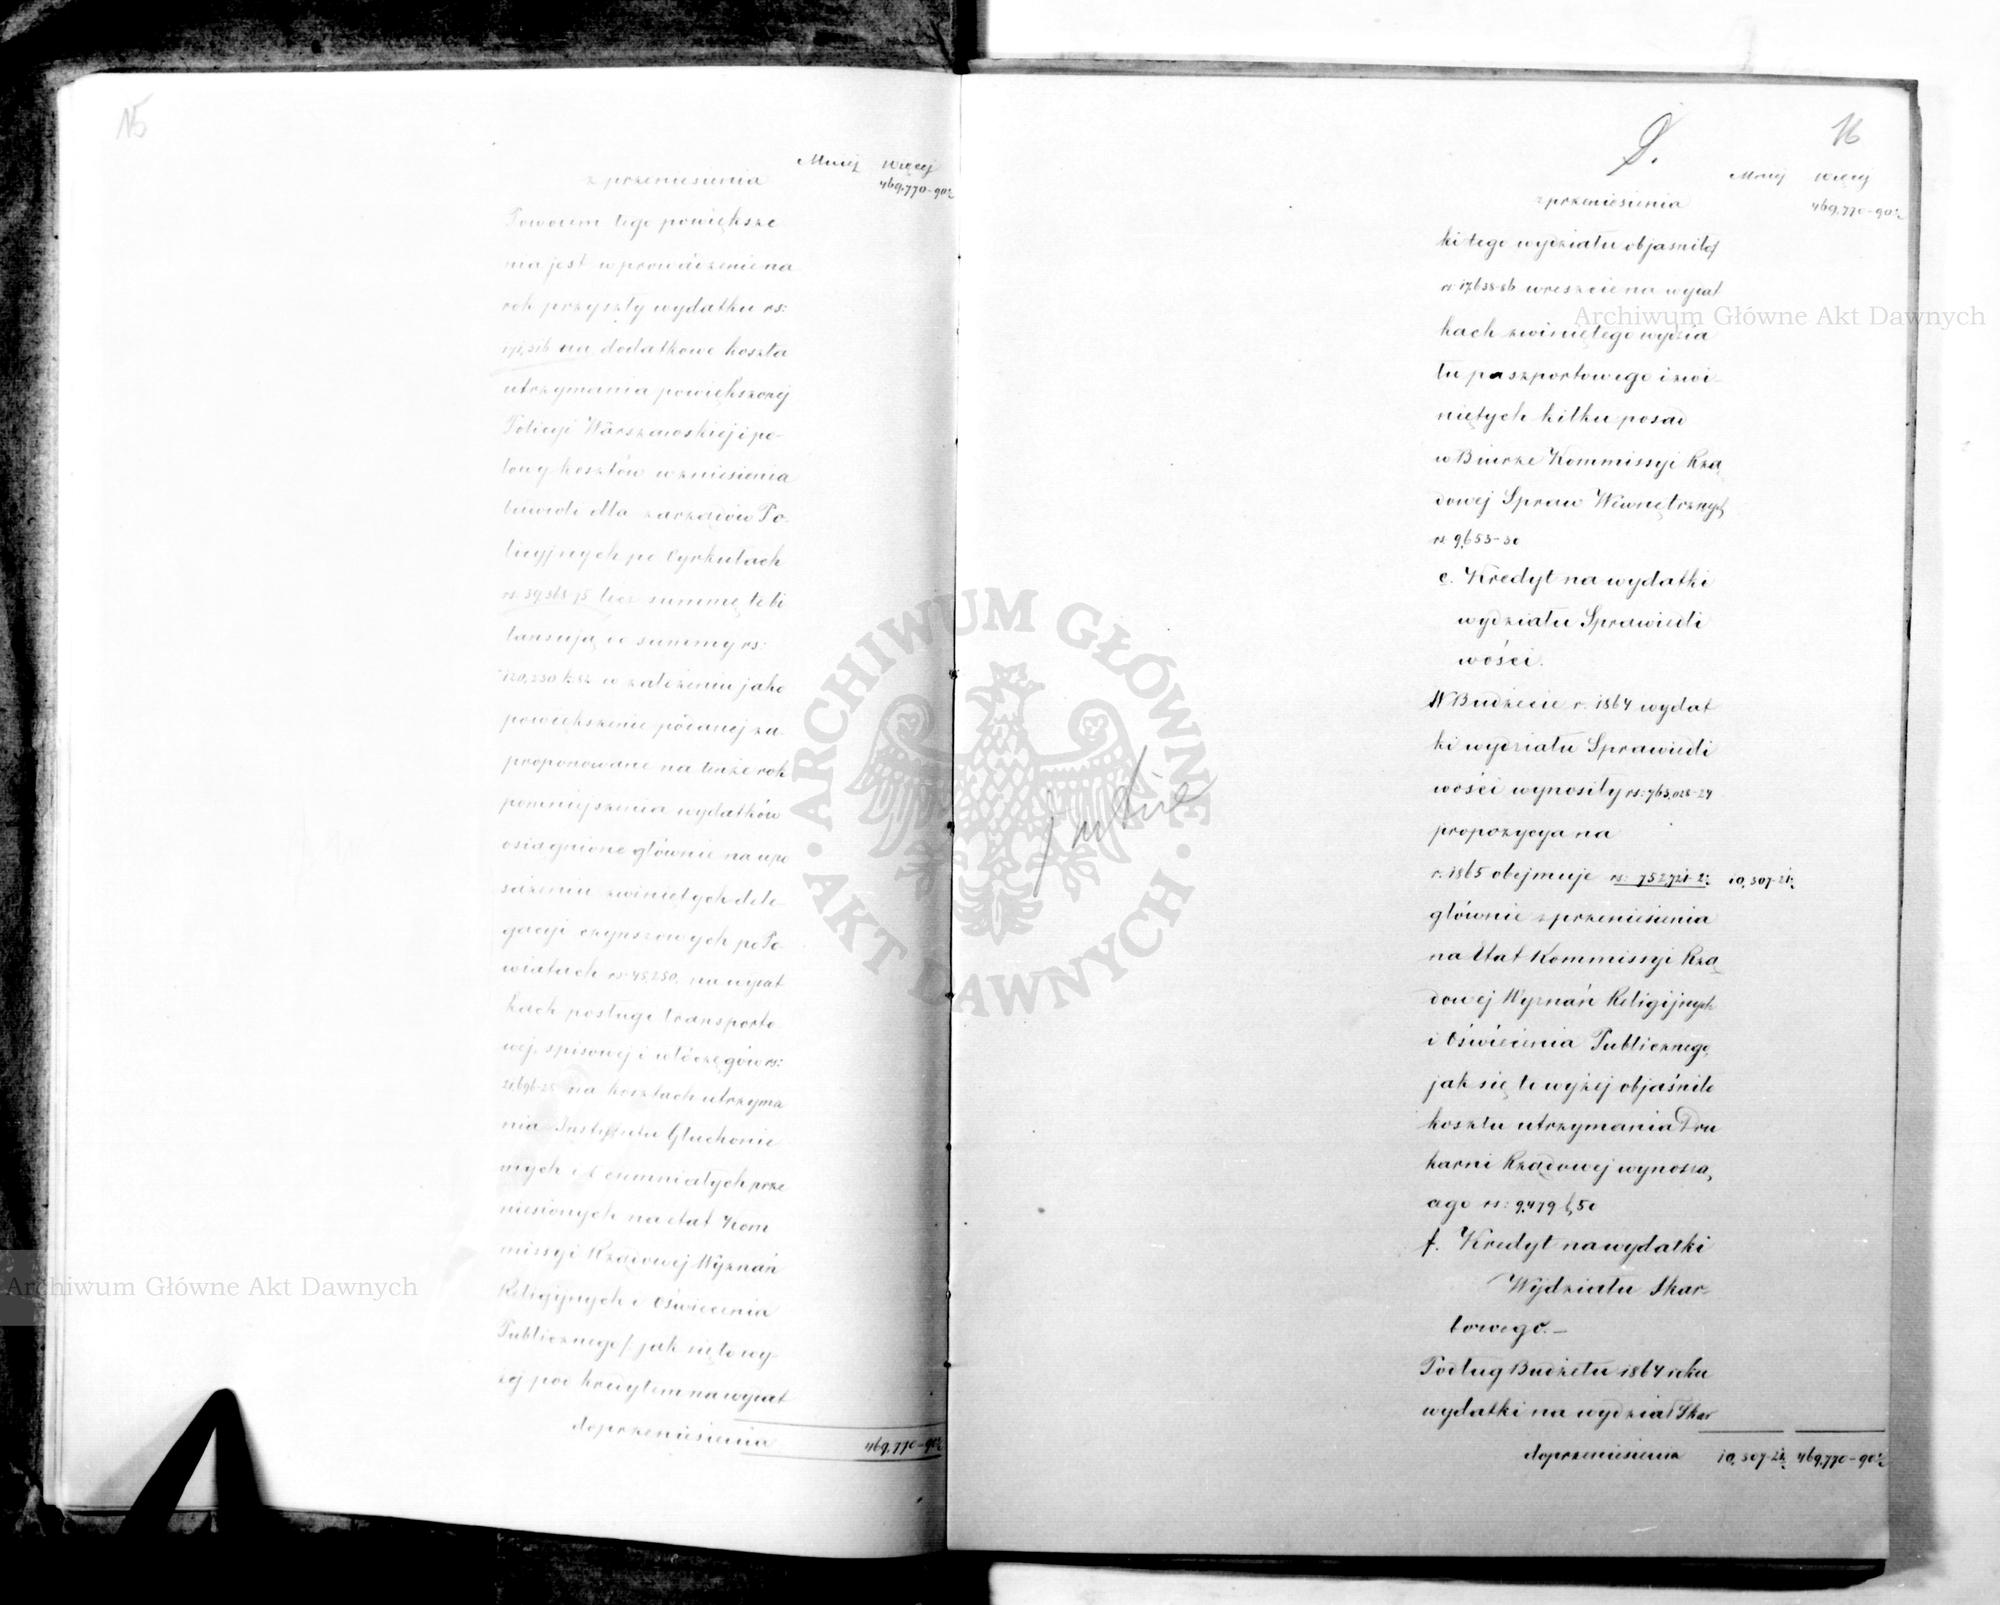 15
Mniej Więcej
z przeniesienia 469,770-90½
Powodem tego powiększe
nia jest wprowadzenie na
rok przyszły wydatku rs:
na dodatkowe koszta
utrzymania powiększonej
Policyi Warszawskiej i po-
łowy kosztów wzniesienia
dla zarządów Po-
licyjnych po Cyrkułach
rs. 39,368-75 lecz summę te bi
lansują do summy rs:
120,230 k. 82 w założeniu jako
powiększenie podanej za-
proponowane na tenże rok
pomniejszenia wydatków
osiągnione głównie na upo
sażeniu zwiniętych dele-
gacyi czynszowych po Po-
wiatach rs. 45,250, na wydat
kach posługi transporto
wej, spisowej i włóczęgów rs:
na kosztach utrzyma
nia Instytutu Głuchonie
mych i Ociemniałych prze
niesionych na etat Kom
missyi Rządowej Wyznań
Religijnych i Oświecenia
Publicznego/: jak się to wy-
żej pod kredytem na wydat
do przeniesienia 469,770-90½
16
9.
Mniej Więcej
z przeniesienia 469,770-90½
ki tego wydziału objaśniło/
rs. 17,638-86 wreszcie na wydat
kach zwiniętego wydzia
łu paszportowego i zwi-
niętych kilku posad
w Biurze Kommissyi Rzą
dowej Spraw Wewnętrznych
rs. 9,653-30
e. Kredyt na wydatki
wydziału Sprawiedli
wości.
W Budżecie r. 1864 wydat
ki wydziału Sprawiedli
wości wynosiły rs: 763,028-24
propozycya na
r. 1865 obejmuje rs: 752,721-2½ 10,307-21½
głównie z przeniesienia
na Etat Kommissyi Rzą
dowej Wyznań Religijnych
i Oświecenia Publicznego
jak się to wyżej objaśniło
kosztu utrzymania Dru
karni Rządowej wynoszą
ago rs: 9,479 k. 50
f. Kredyt na wydatki
Wydziału Skar-
bowego.-
Podług Budżetu 1864 roku
wydatki na wydział Skar
do przeniesienia 10,307-21½ 469,770-90½
ARCHIWUM GŁÓWNE
AKT DAWNYCH
Archiwum Główne Akt Dawnych
Archiwum Główne Akt Dawnych